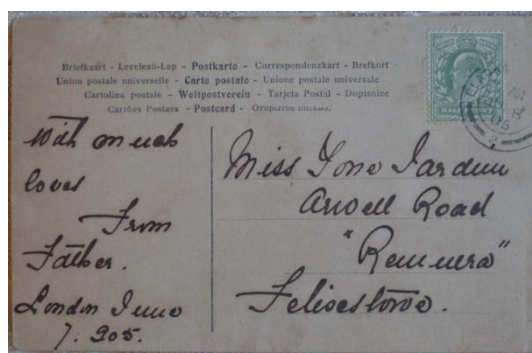 Briefkaart - Levelező-Lap - Postkarte - Correspondenzkart - Brefkort
Union postale universelle - Carte postale - Unione postale universale
Cartolina postale - Weltpostverein - Tarjeta Postal - Dopisnice
Cartões Postaes - Postcard - Открытое письмо.
With much
loves
From
Father.
London June
7. 905.
Miss Ione
Road
"Remuera"
Felixstowe.